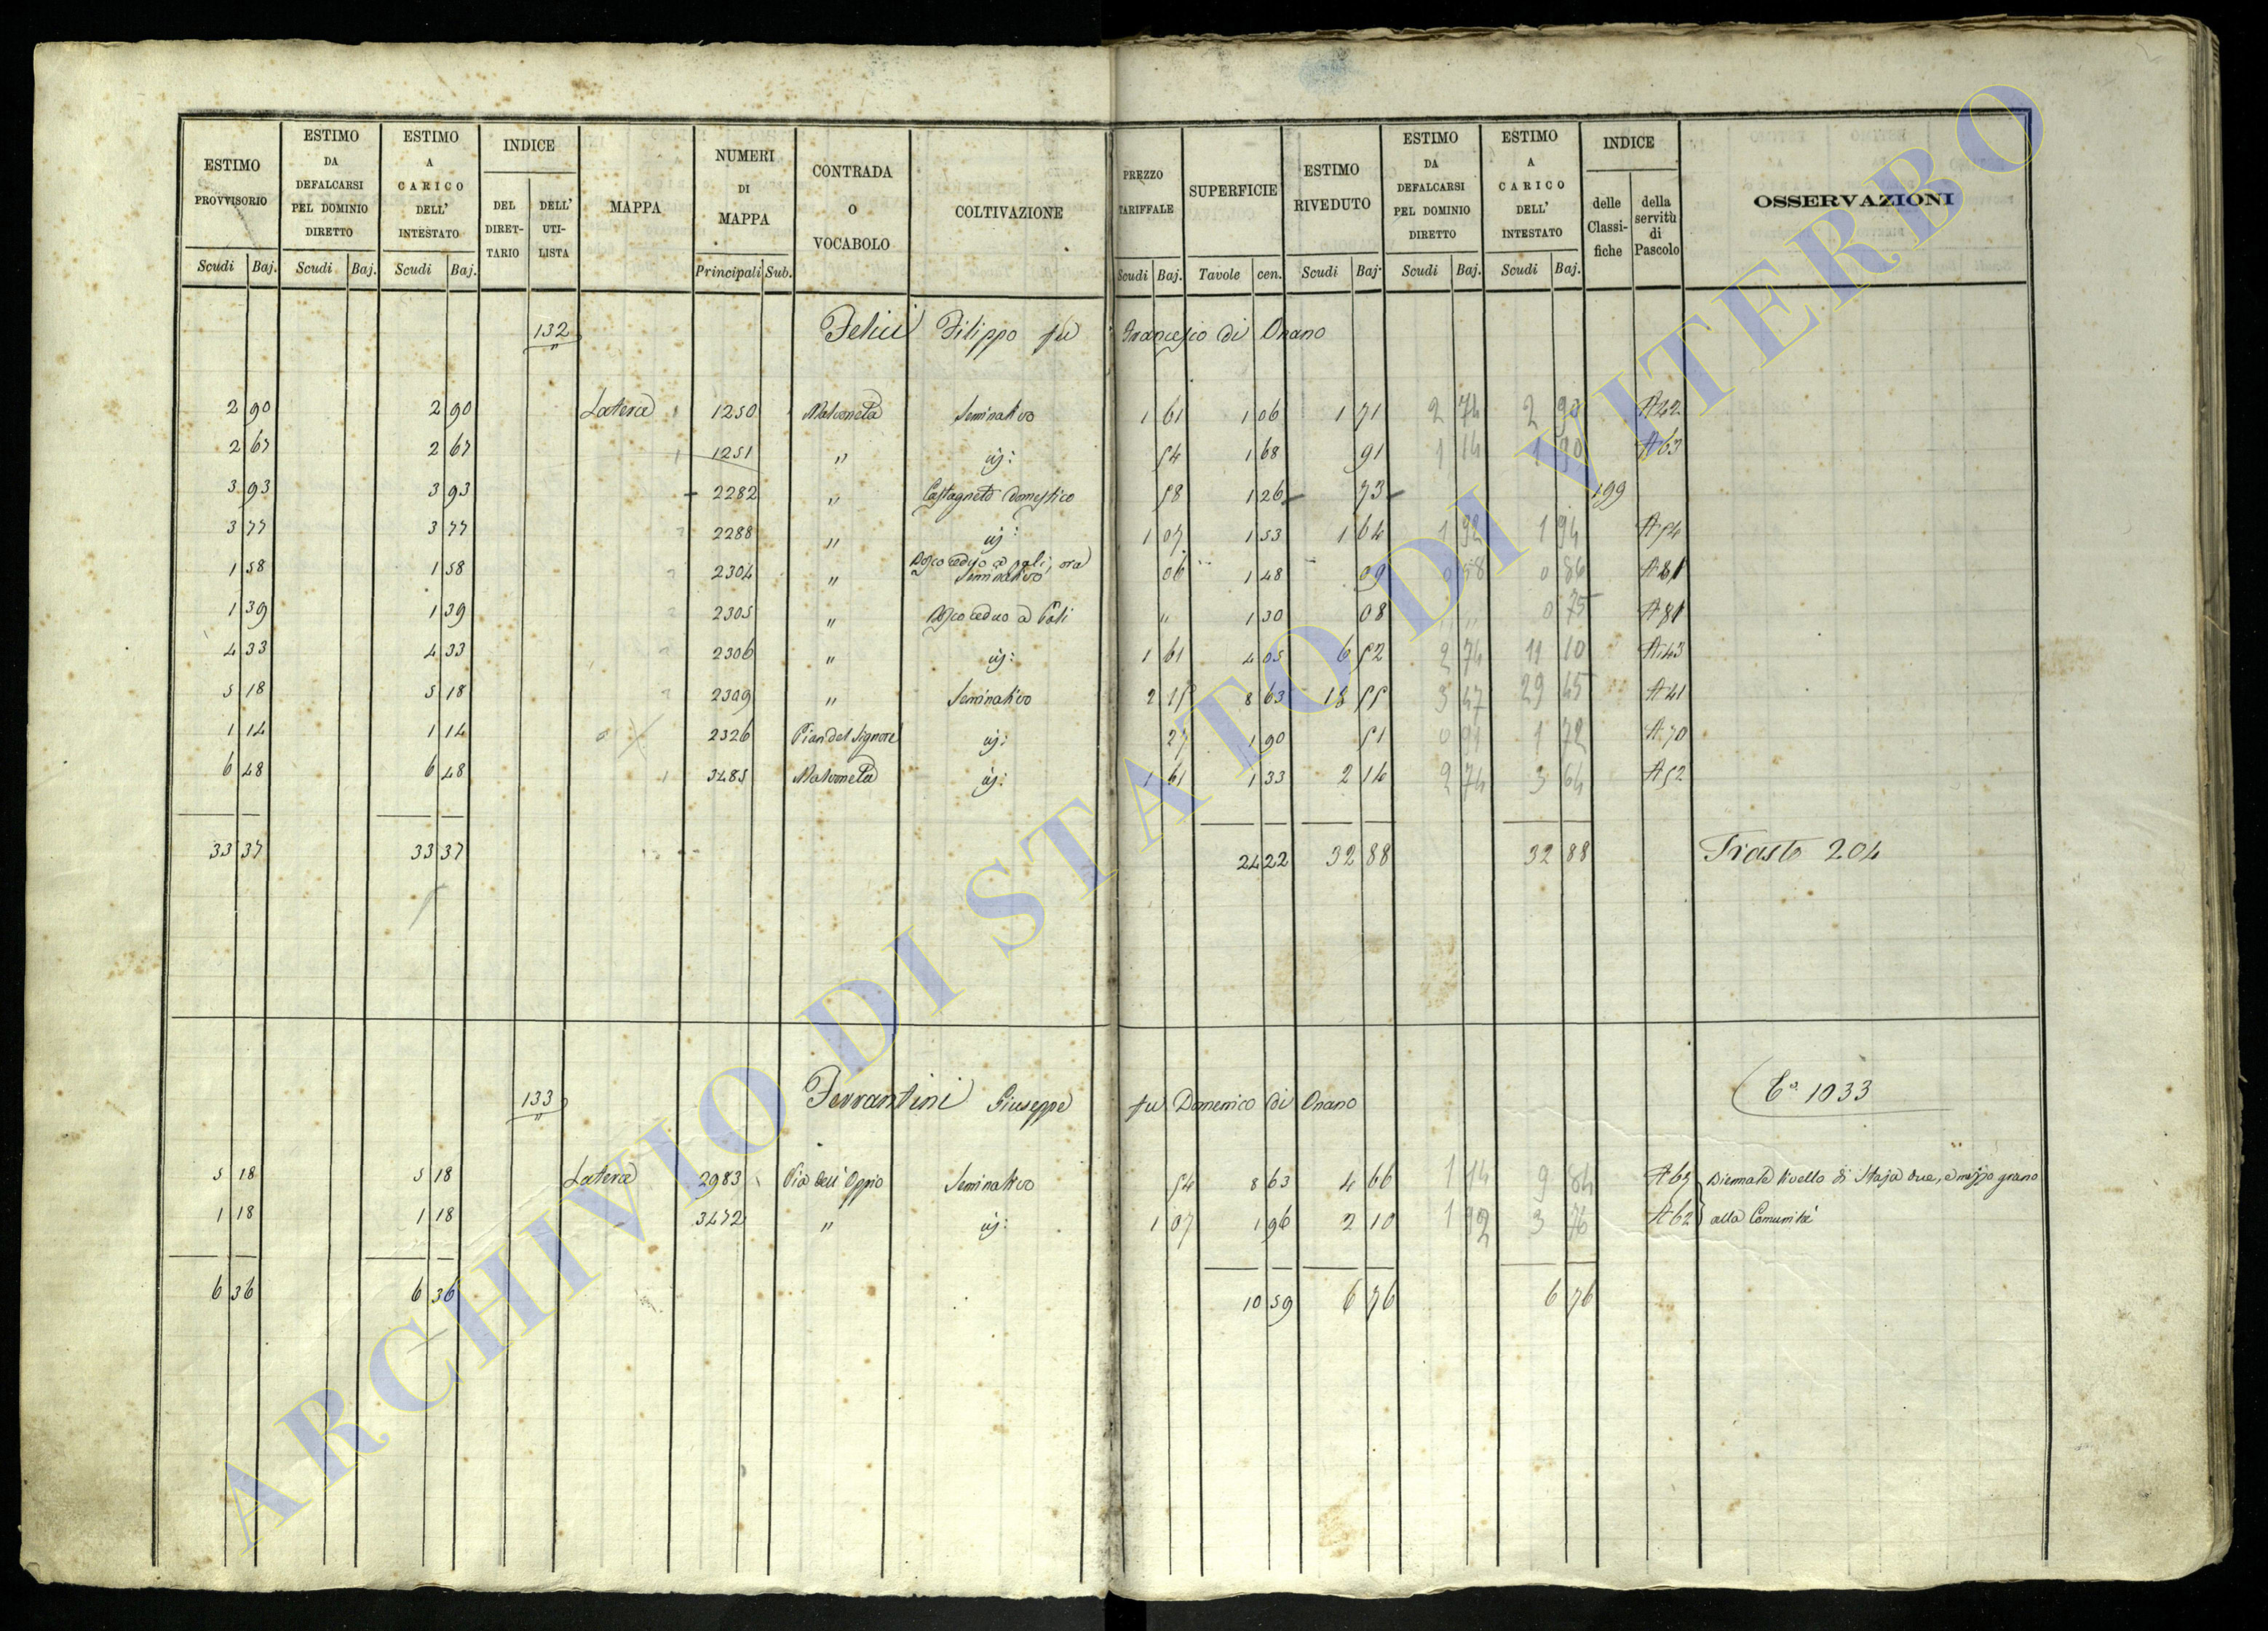 ESTIMO PROVVISORIO | ESTIMO DA DEFALCARSI PEL DOMINIO DIRETTO | ESTIMO A CARICO DELL' INTESTATO | INDICE DEL DIRET-TARIO | DELL' UTI-LISTA | MAPPA | NUMERI DI MAPPA | CONTRADA O VOCABOLO | COLTIVAZIONE | PREZZO TARIFFALE | SUPERFICIE | ESTIMO RIVEDUTO | ESTIMO DA DEFALCARSI PEL DOMINIO DIRETTO | ESTIMO A CARICO DELL' INTESTATO | INDICE delle Classi-fiche | della servitù di Pascolo | OSSERVAZIONI
Scudi Baj. Scudi Baj. Scudi Baj. Principali Sub. Scudi Baj. Tavole cen. Scudi Baj. Scudi Baj. Scudi Baj.
132 Felici Filippo fu Francesco di Onano
2 90 2 90 Latera 1250 Seminativo 1 61 1 06 1 71 2 74 2 90 A42
2 67 2 67 1251 " id: 54 1 68 91 1 14 A63
3 93 3 93 2282 " Castagneto domestico 58 1 26 73 199
3 77 3 77 2288 " id: 1 07 1 53 1 64 1 92 1 94 A54
1 58 1 58 2304 " Bosco ceduo a pali, ora Seminativo 06 1 48 09 0 58 0 86 A81
1 39 1 39 2305 " Bosco ceduo a Pali " 1 30 08 " 0 75 A81
4 33 4 33 2306 " id: 1 61 4 05 6 52 2 74 11 10 A43
5 18 5 18 2309 " Seminativo 2 15 8 63 18 55 3 47 29 45 A41
1 14 1 14 2326 Pian del Signore id: 27 1 90 51 0 91 1 72 A70
6 48 6 48 3485 id: 1 61 1 33 2 14 2 74 3 64 A52
33 37 33 37 24 22 32 88 32 88 204
133 Ferrantini Giuseppe fu Domenico di Onano 1033
5 18 5 18 Latera 2983 Via dell'Oppio Seminativo 54 8 63 4 66 1 14 9 84 A65 Biennale livello di Staja due, e mezzo grano
1 18 1 18 3472 " id: 1 07 1 96 2 10 1 92 3 76 A62 alla Comunità
6 36 6 36 10 59 6 76 6 76
ARCHIVIO DI STATO DI VITERBO